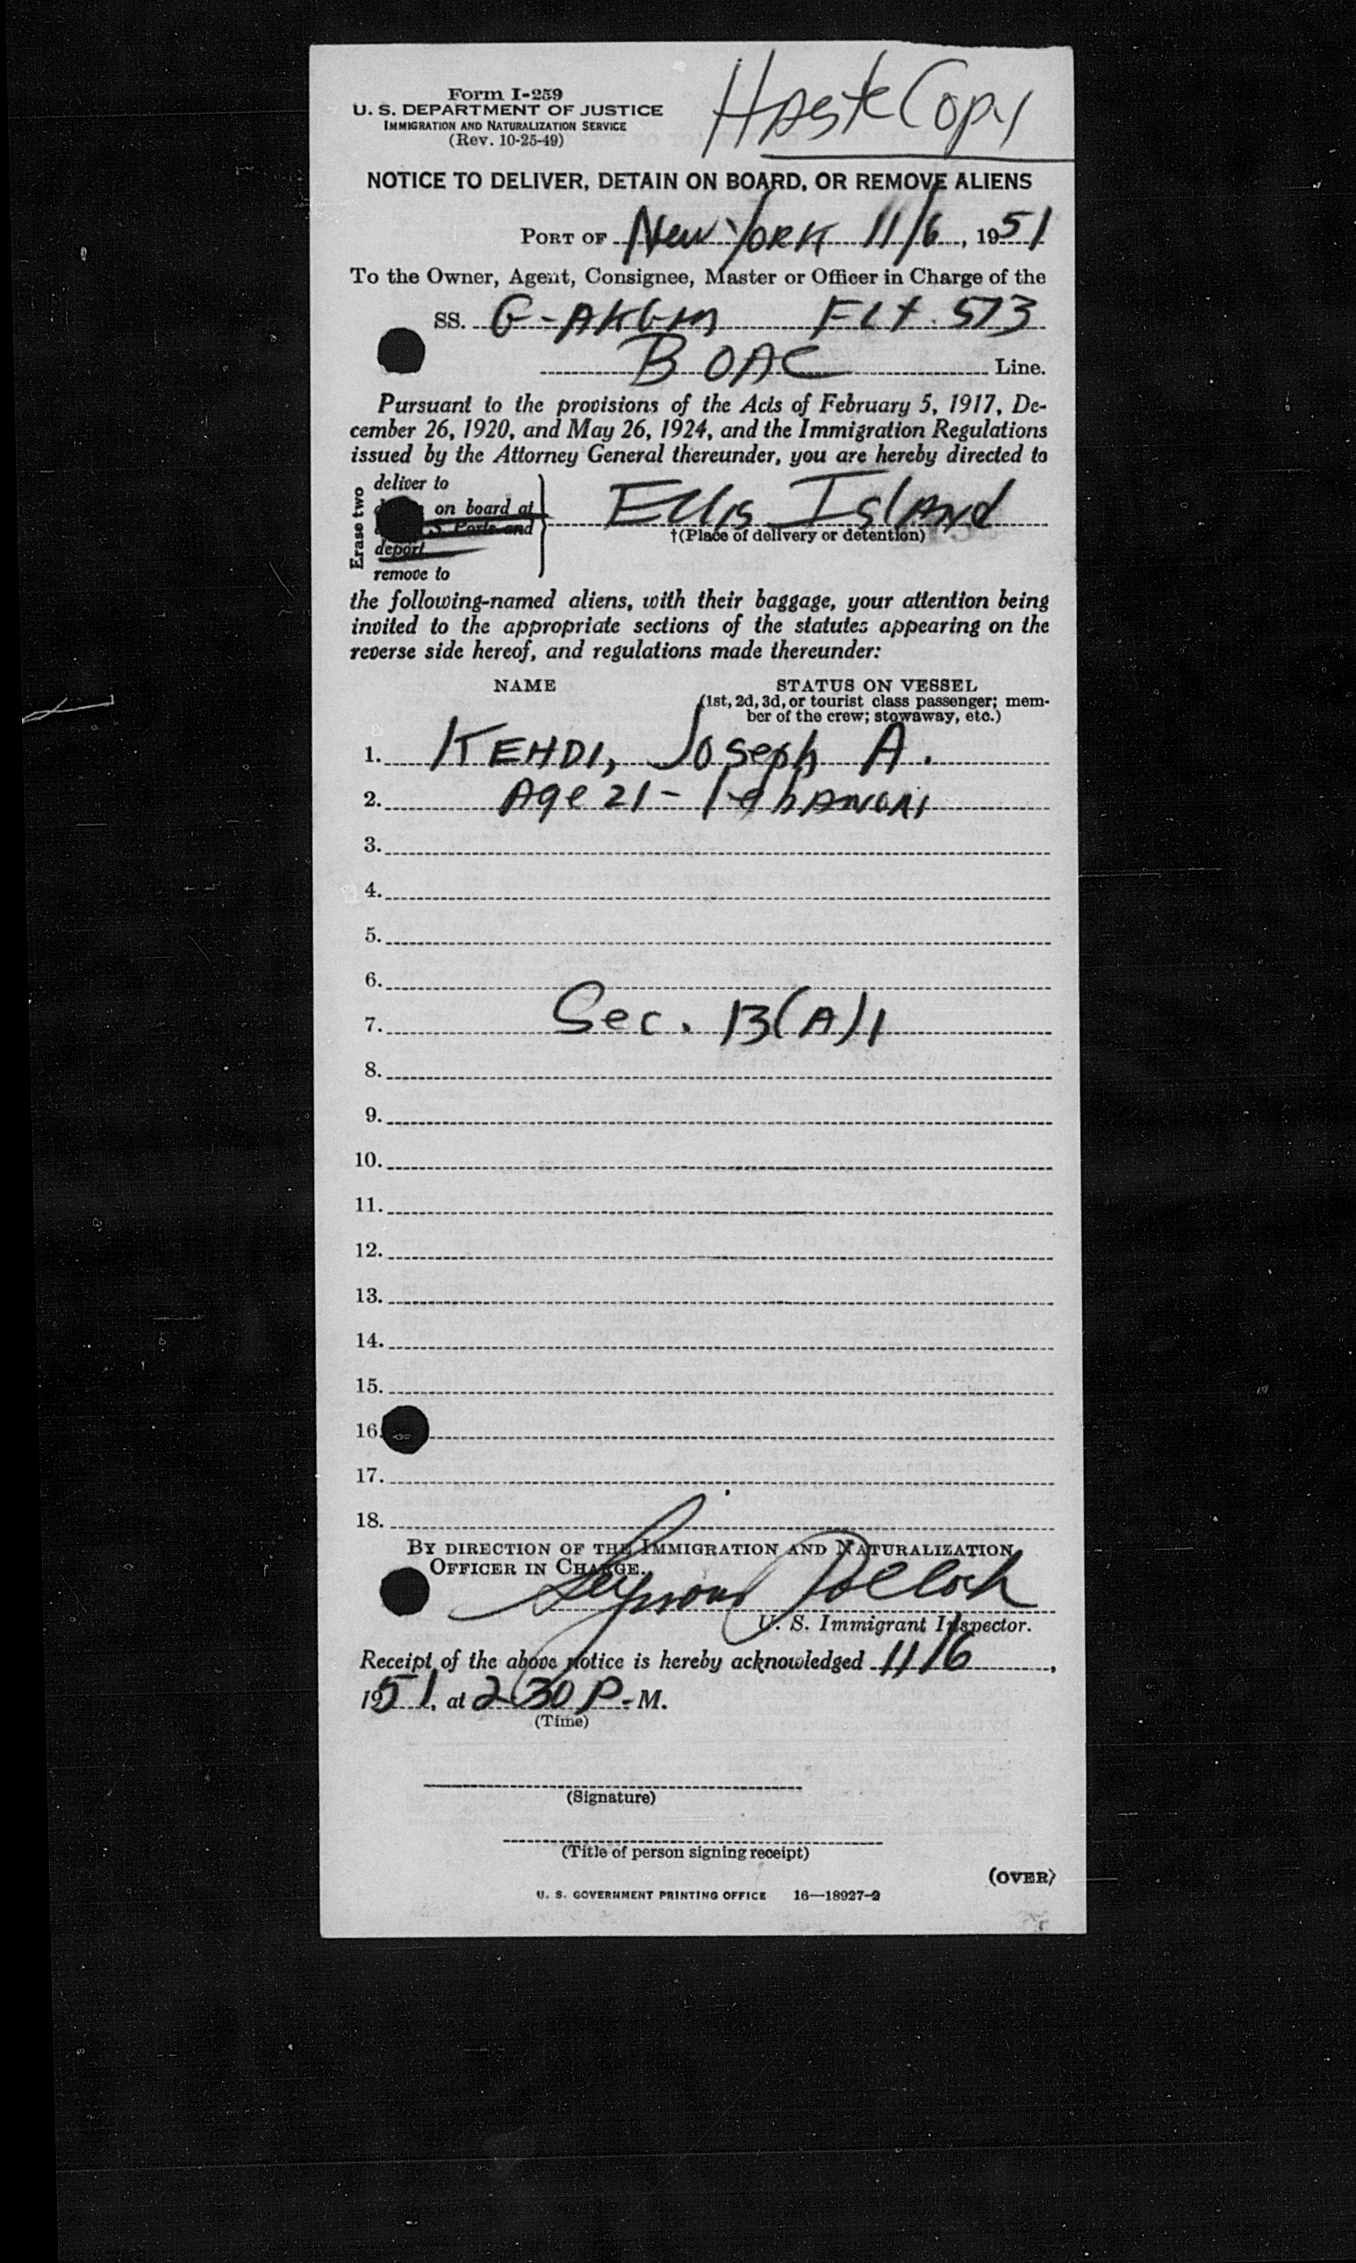 Form I-259
U. S. DEPARTMENT OF JUSTICE
IMMIGRATION AND NATURALIZATION SERVICE
(Rev. 10-25-49)
Haste Copy
NOTICE TO DELIVER, DETAIN ON BOARD, OR REMOVE ALIENS
PORT OF New York 11/6, 1951
To the Owner, Agent, Consignee, Master or Officer in Charge of the
SS. G-AKGM FLT. 573
BOAC Line.
Pursuant to the provisions of the Acts of February 5, 1917, De-
cember 26, 1920, and May 26, 1924, and the Immigration Regulations
issued by the Attorney General thereunder, you are hereby directed to
Erase two
deliver to
on board at
S. Ports and
deport
remove to
Ellis Island
†(Place of delivery or detention)
the following-named aliens, with their baggage, your attention being
invited to the appropriate sections of the statutes appearing on the
reverse side hereof, and regulations made thereunder:
NAME STATUS ON VESSEL
(1st, 2d, 3d, or tourist class passenger; mem-
ber of the crew; stowaway, etc.)
1. KEHDI, Joseph A.
2. Age 21 - Lebanon
3.
4.
5.
6.
7. Sec. 13(A)1
8.
9.
10.
11.
12.
13.
14.
15.
16.
17.
18.
BY DIRECTION OF THE IMMIGRATION AND NATURALIZATION
OFFICER IN CHARGE.
Seymour Pollock
U. S. Immigrant Inspector.
Receipt of the above notice is hereby acknowledged 11/6,
1951, at 2:30 P.M.
(Time)
(Signature)
(Title of person signing receipt)
(OVER)
U. S. GOVERNMENT PRINTING OFFICE 16—18927-2